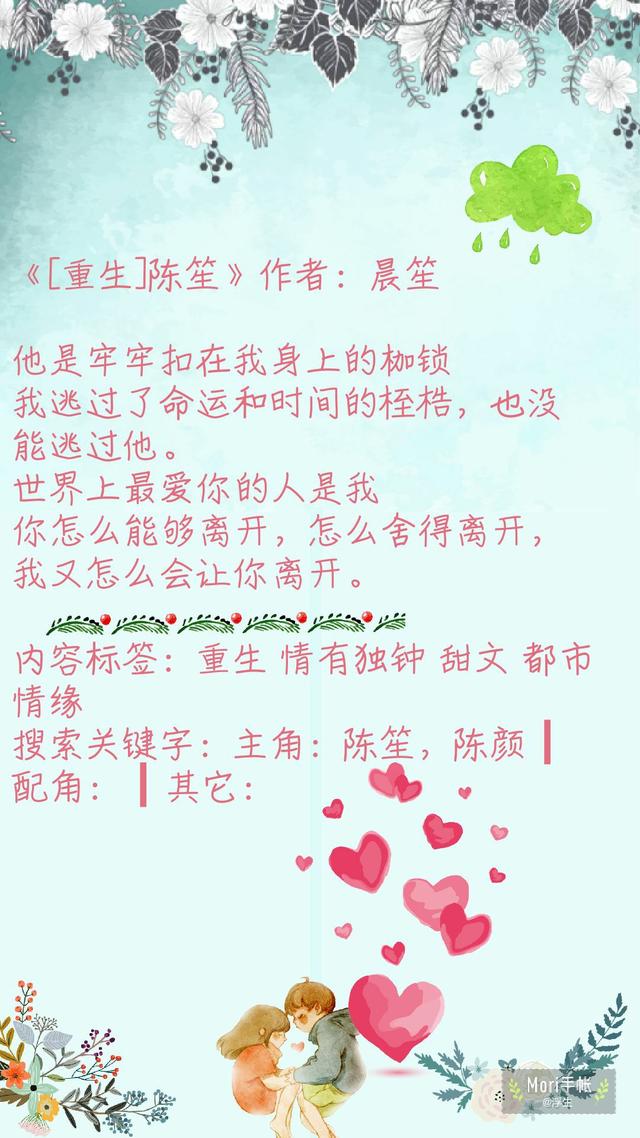 《[重生]陈笙》作者：晨笙
他是牢牢扣在我身上的枷锁
我逃过了命运和时间的桎梏，也没
能逃过他。
世界上最爱你的人是我
你怎么能够离开，怎么舍得离开，
我又怎么会让你离开。
内容标签：重生 情有独钟 甜文 都市
情缘
搜索关键字：主角：陈笙，陈颜 ┃
配角： ┃ 其它：
Mori手帐
@浮生